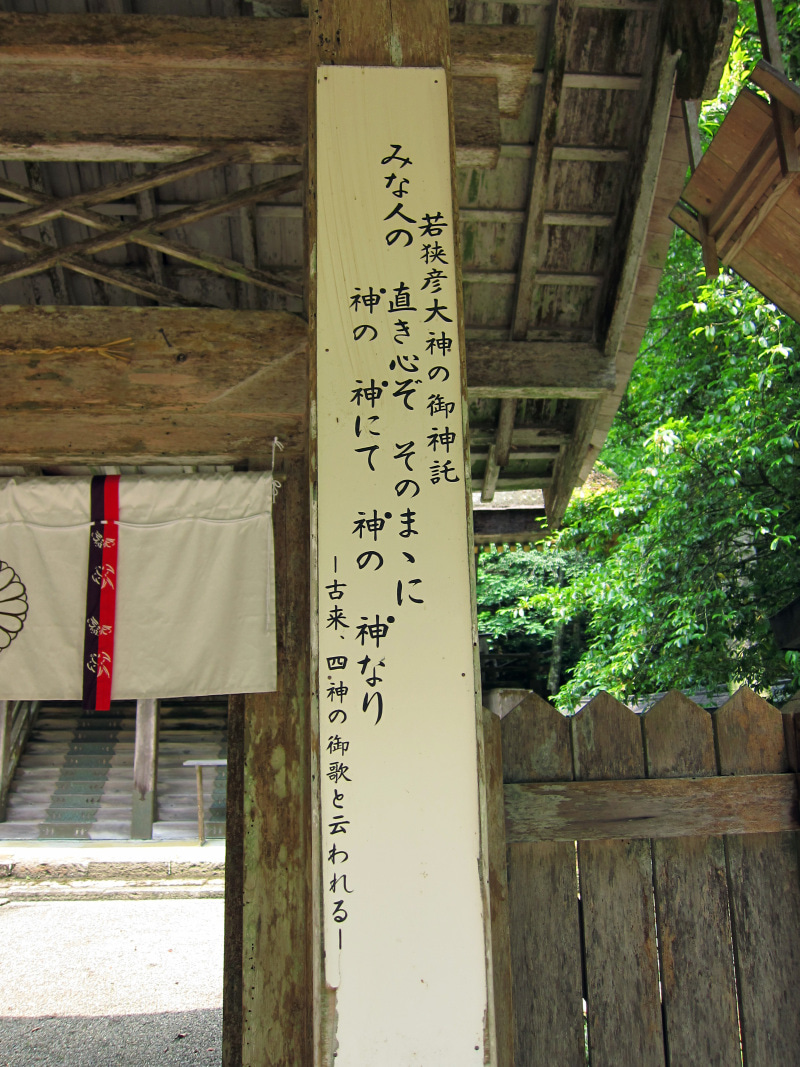 若狭彦大神の御神託
みな人の 直き心ぞ そのまゝに
神の 神にて 神の 神なり
―古来、四神の御歌と云われる―